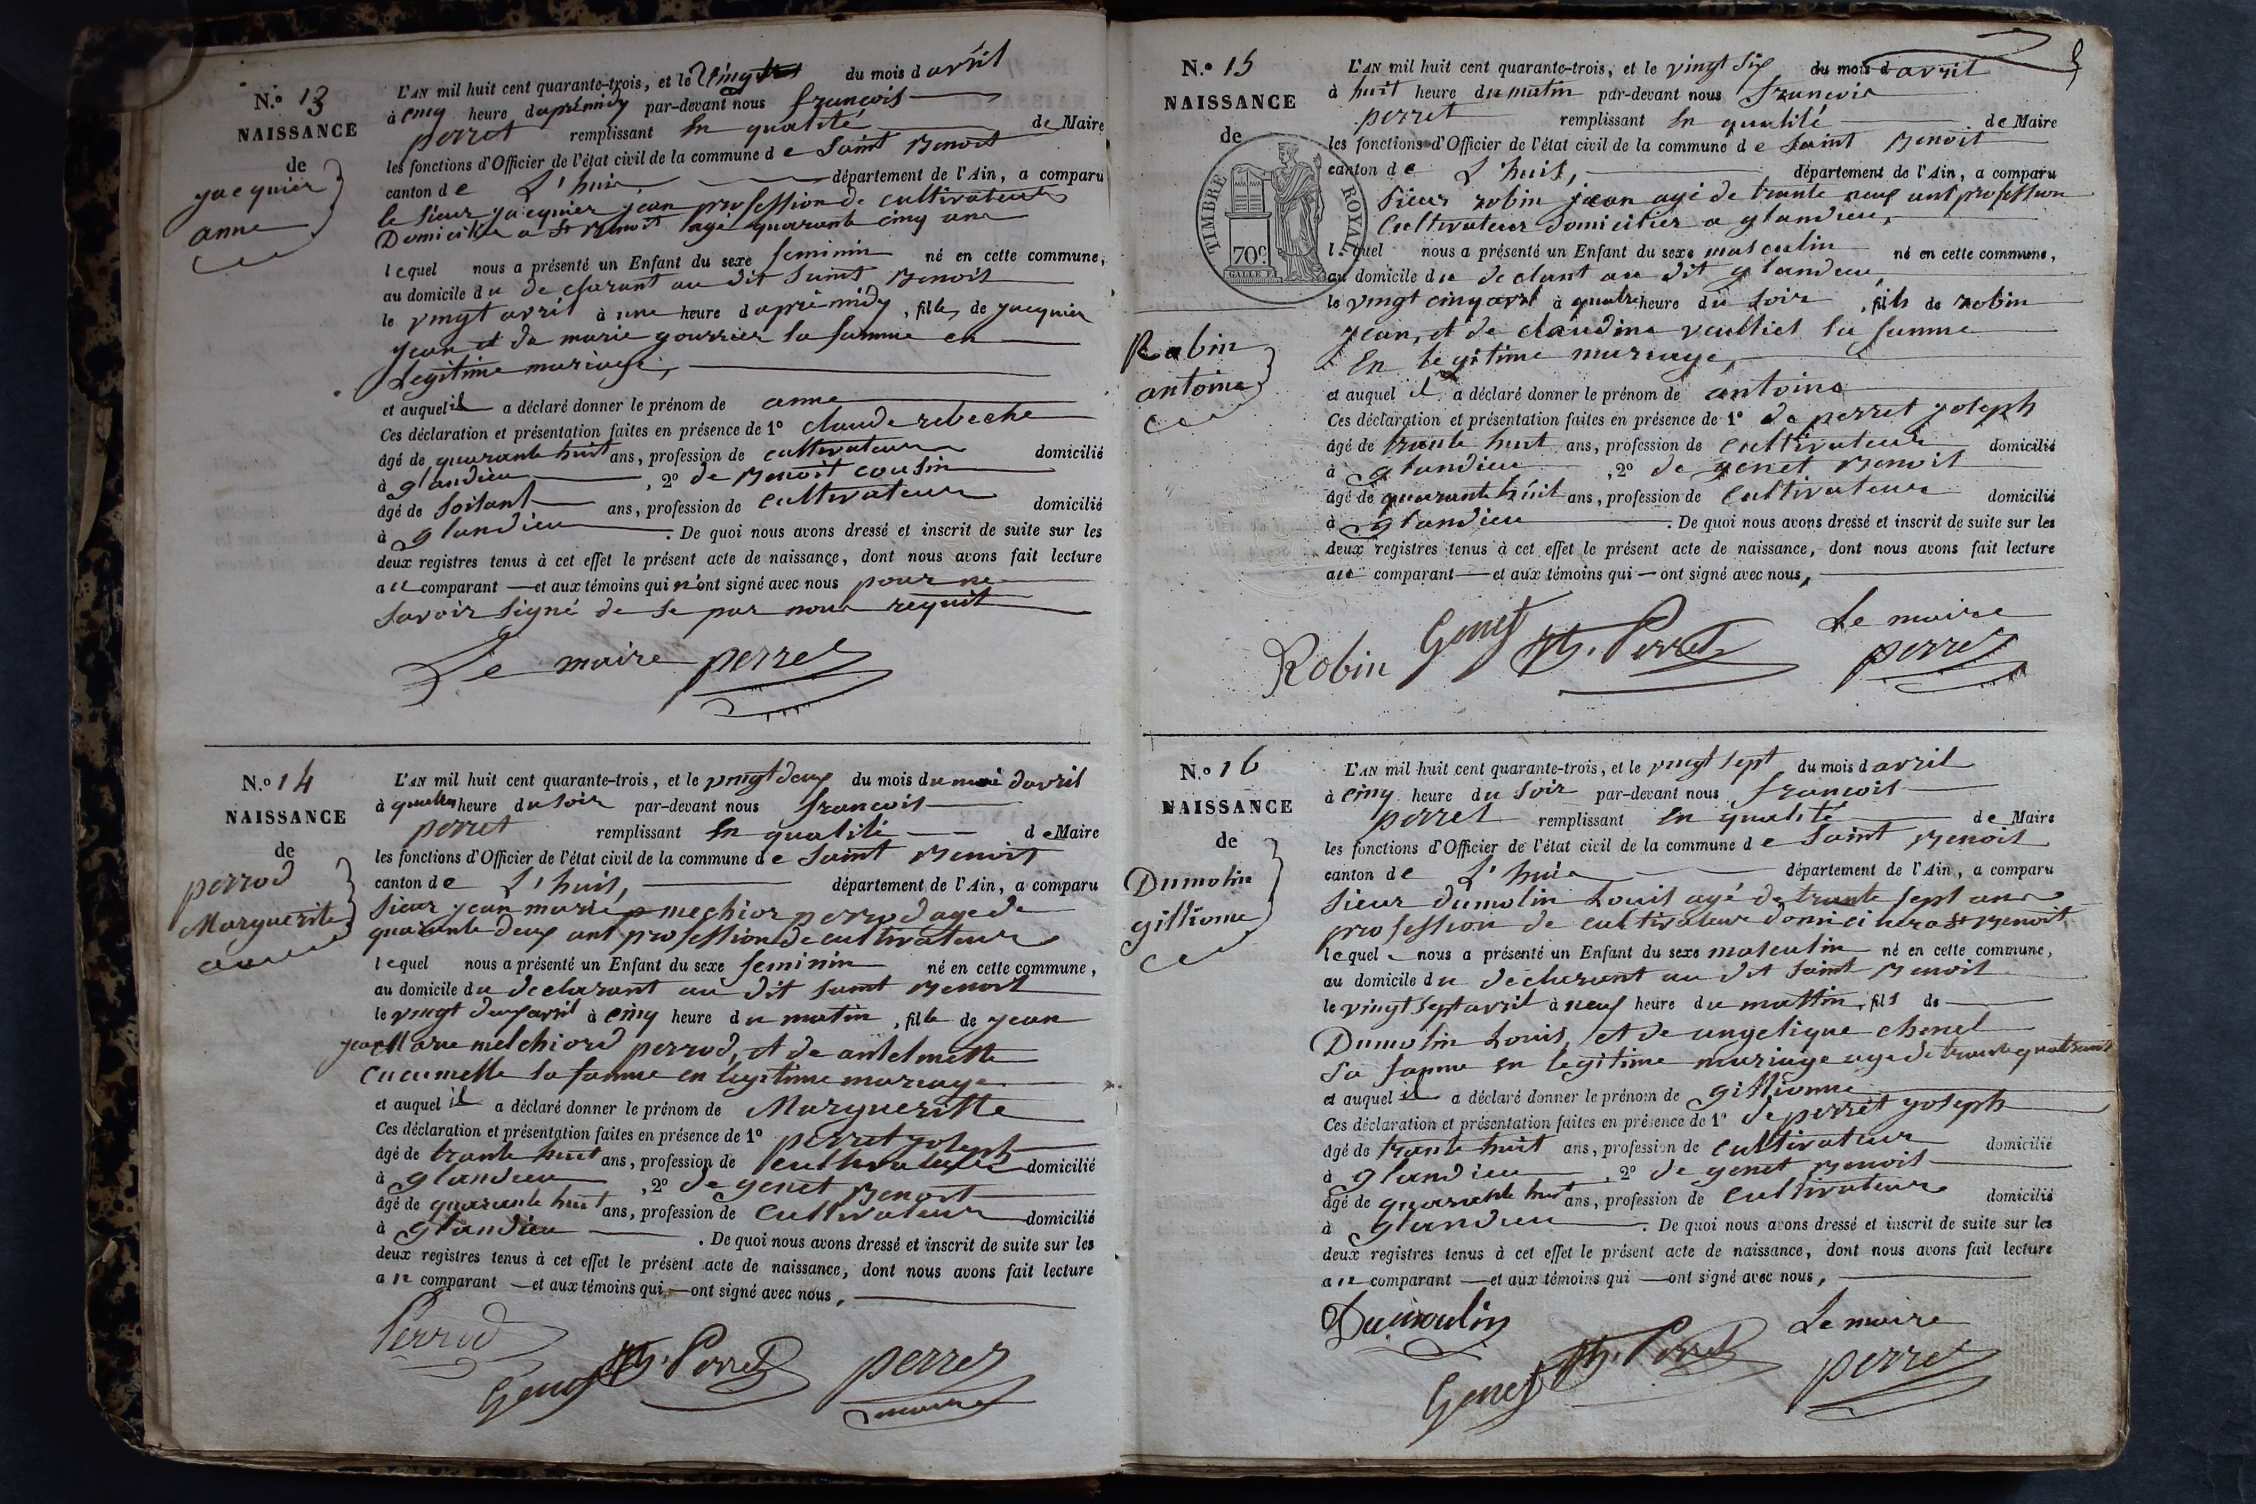 N.° 13
NAISSANCE
de
jacquier
anne
L'AN mil huit cent quarante-trois, et le vingt du mois d avril
à cinq heure daprémidy par-devant nous francois
perret remplissant en qualité de Maire
les fonctions d'Officier de l'état civil de la commune d e Saint Benoit
canton d e L'huis, département de l'Ain, a comparu
le Sieur jacquier jean profession de cultivateur
Domicilier a St Benoit agé quarante cinq ans
lequel nous a présenté un Enfant du sexe feminin né en cette commune,
au domicile du declarant au dit Saint Benoit
le vingt avril à une heure daprémidy, fille de jacquier
jean et de marie gourrier sa famme en
Legitime mariage,
et auquel il a déclaré donner le prénom de anne
Ces déclaration et présentation faites en présence de 1° claude rebeche
âgé de quarante huit ans, profession de cultivateur domicilié
à glandieu, 2° de Benoit cousin
âgé de soisant ans, profession de cultivateur domicilié
à glandieu. De quoi nous avons dressé et inscrit de suite sur les
deux registres tenus à cet effet le présent acte de naissance, dont nous avons fait lecture
au comparant — et aux témoins qui n'ont signé avec nous pour ne
savoir signé de se par nous requit
Le maire perret
N.° 14
NAISSANCE
de
perrod
Marguerite
L'AN mil huit cent quarante-trois, et le vingt deux du mois du mai davril
à quatre heure du soir par-devant nous francois
perret remplissant en qualité de Maire
les fonctions d'Officier de l'état civil de la commune d e Saint Benoit
canton d e L'huis, département de l'Ain, a comparu
Sieur jean marie mechior perrod age de
quarante deux ans profession de cultivateur
lequel nous a présenté un Enfant du sexe feminin né en cette commune,
au domicile du declarant au dit Saint Benoit
le vingt deux avril à cinq heure du matin, fille de jean
Marie melchiord perrod, et de antelmette
cucumelle sa famme en legitime mariage
et auquel il a déclaré donner le prénom de Margueritte
Ces déclaration et présentation faites en présence de 1° perret joseph
âgé de trante huit ans, profession de cultivateur domicilié
à glandieu, 2° de genet Benoit
âgé de quarante huit ans, profession de cultivateur domicilié
à glandieu. De quoi nous avons dressé et inscrit de suite sur les
deux registres tenus à cet effet le présent acte de naissance, dont nous avons fait lecture
au comparant — et aux témoins qui — ont signé avec nous,
Perrod
Genet Jh. Perret perret
maire
N.° 15
NAISSANCE
de
TIMBRE ROYAL
70c
Robin
antoine
L'AN mil huit cent quarante-trois, et le vingt six du mois d avril
à huit heure du matin par-devant nous francois
perret remplissant en qualité de Maire
les fonctions d'Officier de l'état civil de la commune d e Saint Benoit
canton d e L'huis, département de l'Ain, a comparu
Sieur robin jean agé de trante neuf ans profession
Cultivateur domicilier a glandieu,
lequel nous a présenté un Enfant du sexe masculin né en cette commune,
au domicile du declant au dit glandieu
le vingt cinq avril à quatre heure du soir, fils de robin
jean, et de claudine vculliet sa famme
En legitime mariage,
et auquel il a déclaré donner le prénom de antoine
Ces déclaration et présentation faites en présence de 1° de perret joseph
âgé de trante huit ans, profession de cultivateur domicilié
à glandieu, 2° de genet Benoit
âgé de quarante huit ans, profession de cultivateur domicilié
à glandieu. De quoi nous avons dressé et inscrit de suite sur les
deux registres tenus à cet effet le présent acte de naissance, dont nous avons fait lecture
au comparant — et aux témoins qui — ont signé avec nous,
Robin Genet Jh. Perret Le maire
perret
N.° 16
NAISSANCE
de
Dumolin
gillionne
L'AN mil huit cent quarante-trois, et le vingt sept du mois d avril
à cinq heure du soir par-devant nous francois
perret remplissant en qualité de Maire
les fonctions d'Officier de l'état civil de la commune d e Saint Benoit
canton d e L'huis département de l'Ain, a comparu
Sieur dumolin Louis agé de trante sept ans
profession de cultivateur a St Benoit
lequel nous a présenté un Enfant du sexe masculin né en cette commune,
au domicile du declarant au dit Saint Benoit
le vingt sept avril à neuf heure du mattin, fils de
Dumolin Louis, et de angelique chenel
Sa famme en legitime mariage age de trante quatre ans
et auquel il a déclaré donner le prénom de gillionne
Ces déclaration et présentation faites en présence de 1° de perret joseph
âgé de trante huit ans, profession de cultivateur domicilié
à glandieu, 2° de genet Benoit
âgé de quarante huit ans, profession de cultivateur domicilié
à glandieu. De quoi nous avons dressé et inscrit de suite sur les
deux registres tenus à cet effet le présent acte de naissance, dont nous avons fait lecture
au comparant — et aux témoins qui — ont signé avec nous,
Dumoulin Le maire
Genet Jh. Perret perret